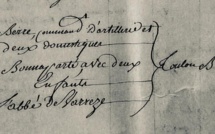 Serre command d'artillerie et
deux domestiques
Buonaparte avec deux
Enfants
l'abbé de
Toulon